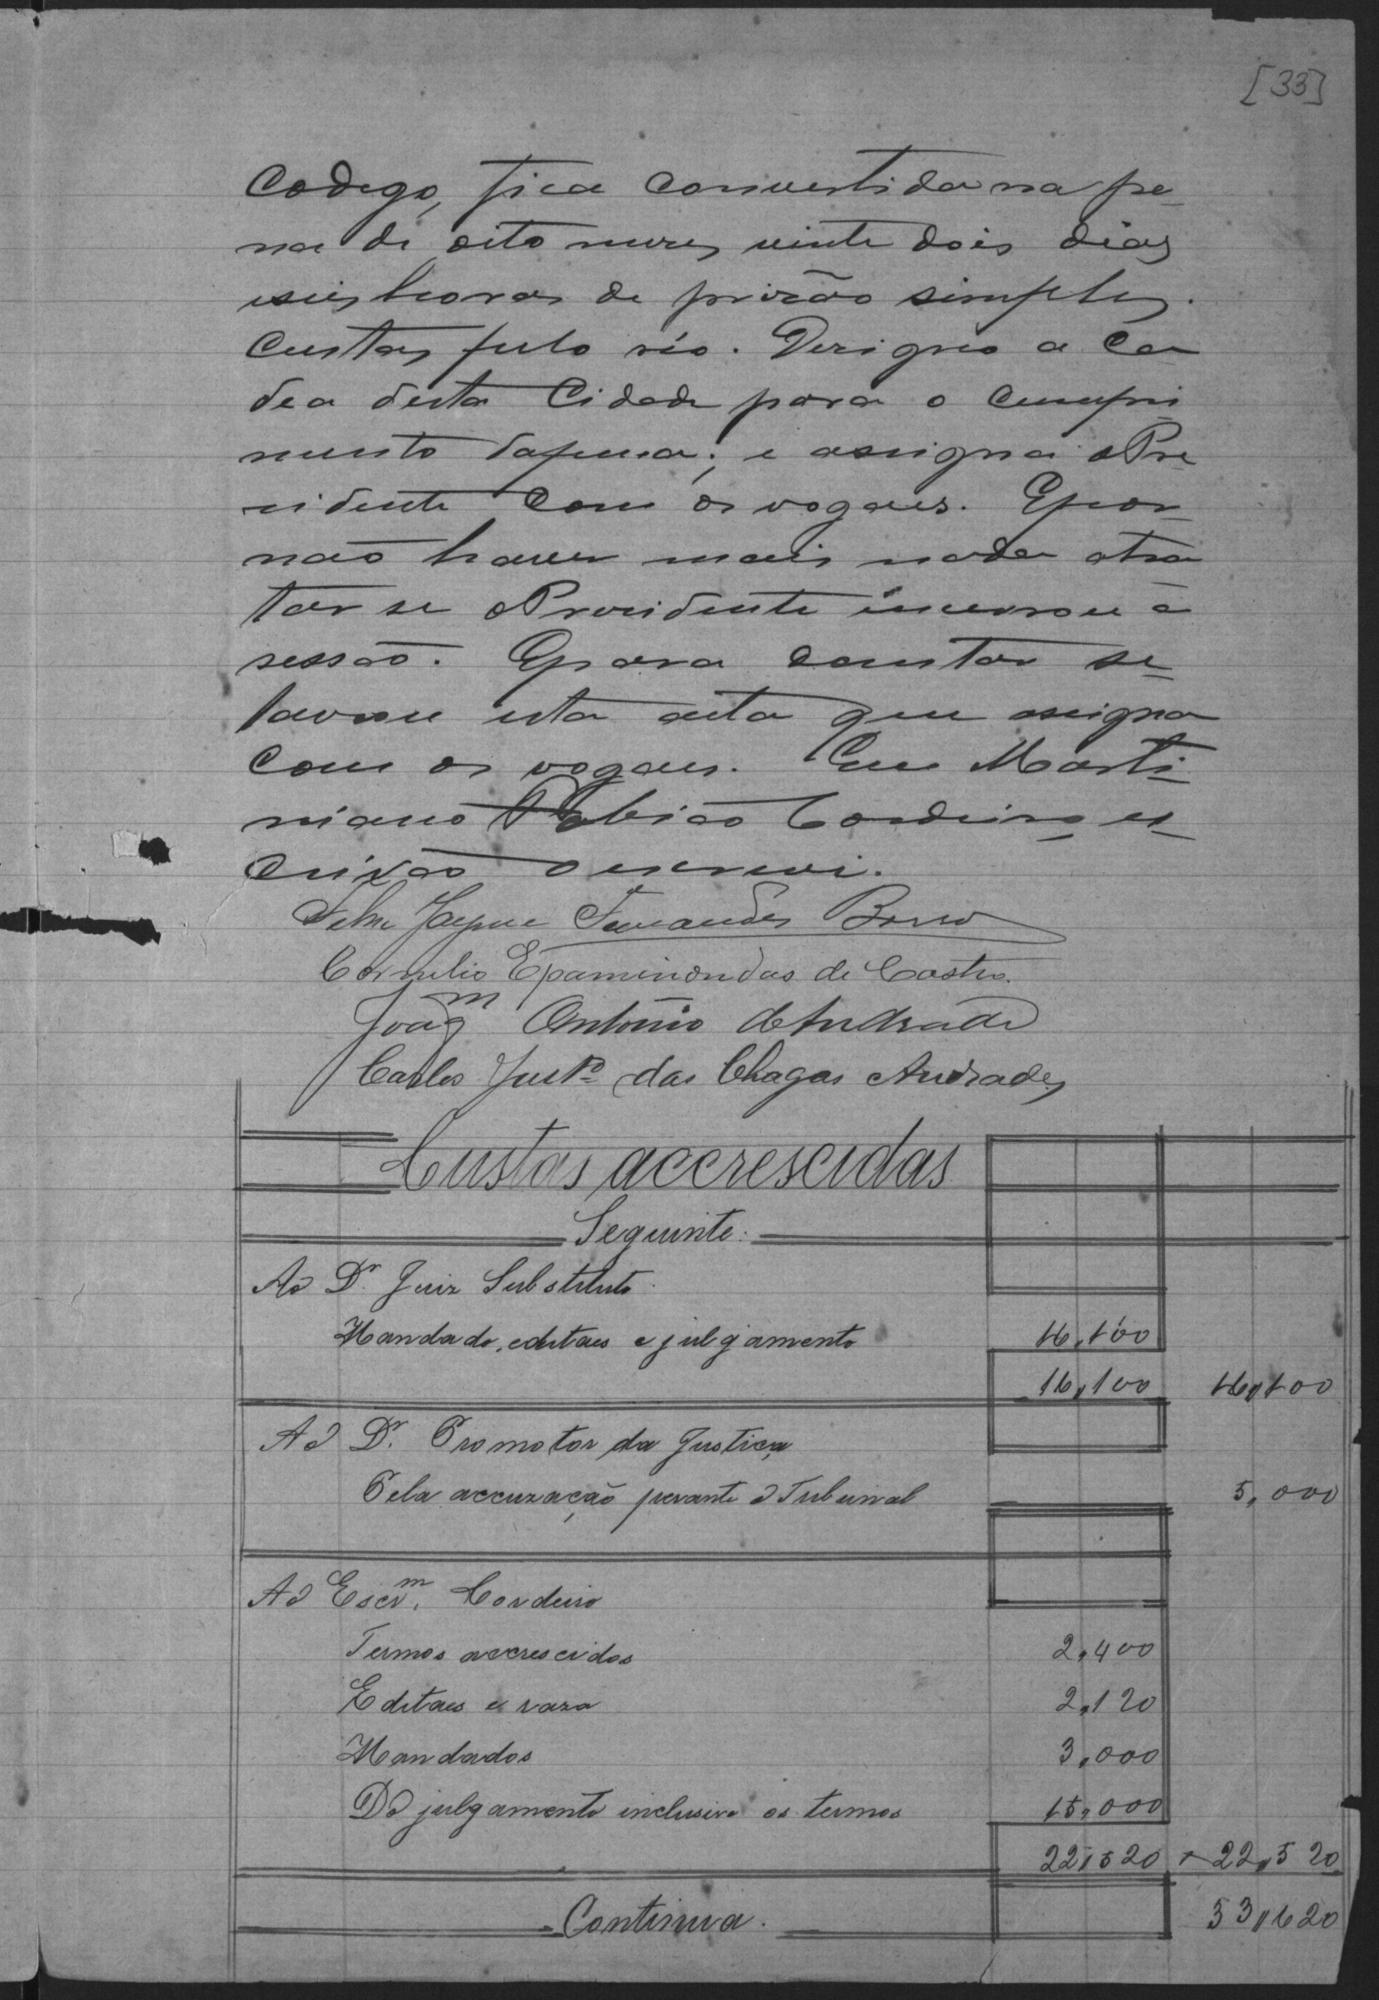 [33]
Codego, fica convertida na pe-
na de oito mezes vinte dois dias
e seis horas de prizão simples.
Custas pelo réo. Dezigno a Ca
dea desta Cidade para o cumpri
mento da pena; e assigna o Pre
zidente com os vogaes. E por
não haver mais nada atra
tar se o Prezidente incerrou a
sessão. E para constar se-
lavrou esta acta que assigna
com os vogaes. Eu Marti-
niano Fabião Cordeiro, es-
crivão o escrevi.
Jayme Fernandes Barros
Cornelio Epaminondas de Castro.
Joaqm Antonio de Andrade
Carlos Justo das Chagas Andrade
Custas accrescidas
Seguinte:
Ao Dr Juiz Substituto
Mandado, editaes e julgamento 16,100
16,100 16,100
Ao Dr. Promotor da Justiça
Pela accuzação perante o Tribunal 5,000
Ao Escrm. Cordeiro
Termos accrescidos 2,400
Editaes e raza 2,120
Mandados 3,000
Do julgamento inclusive os termos 15,000
22,520 22,520
Continua. 53,620